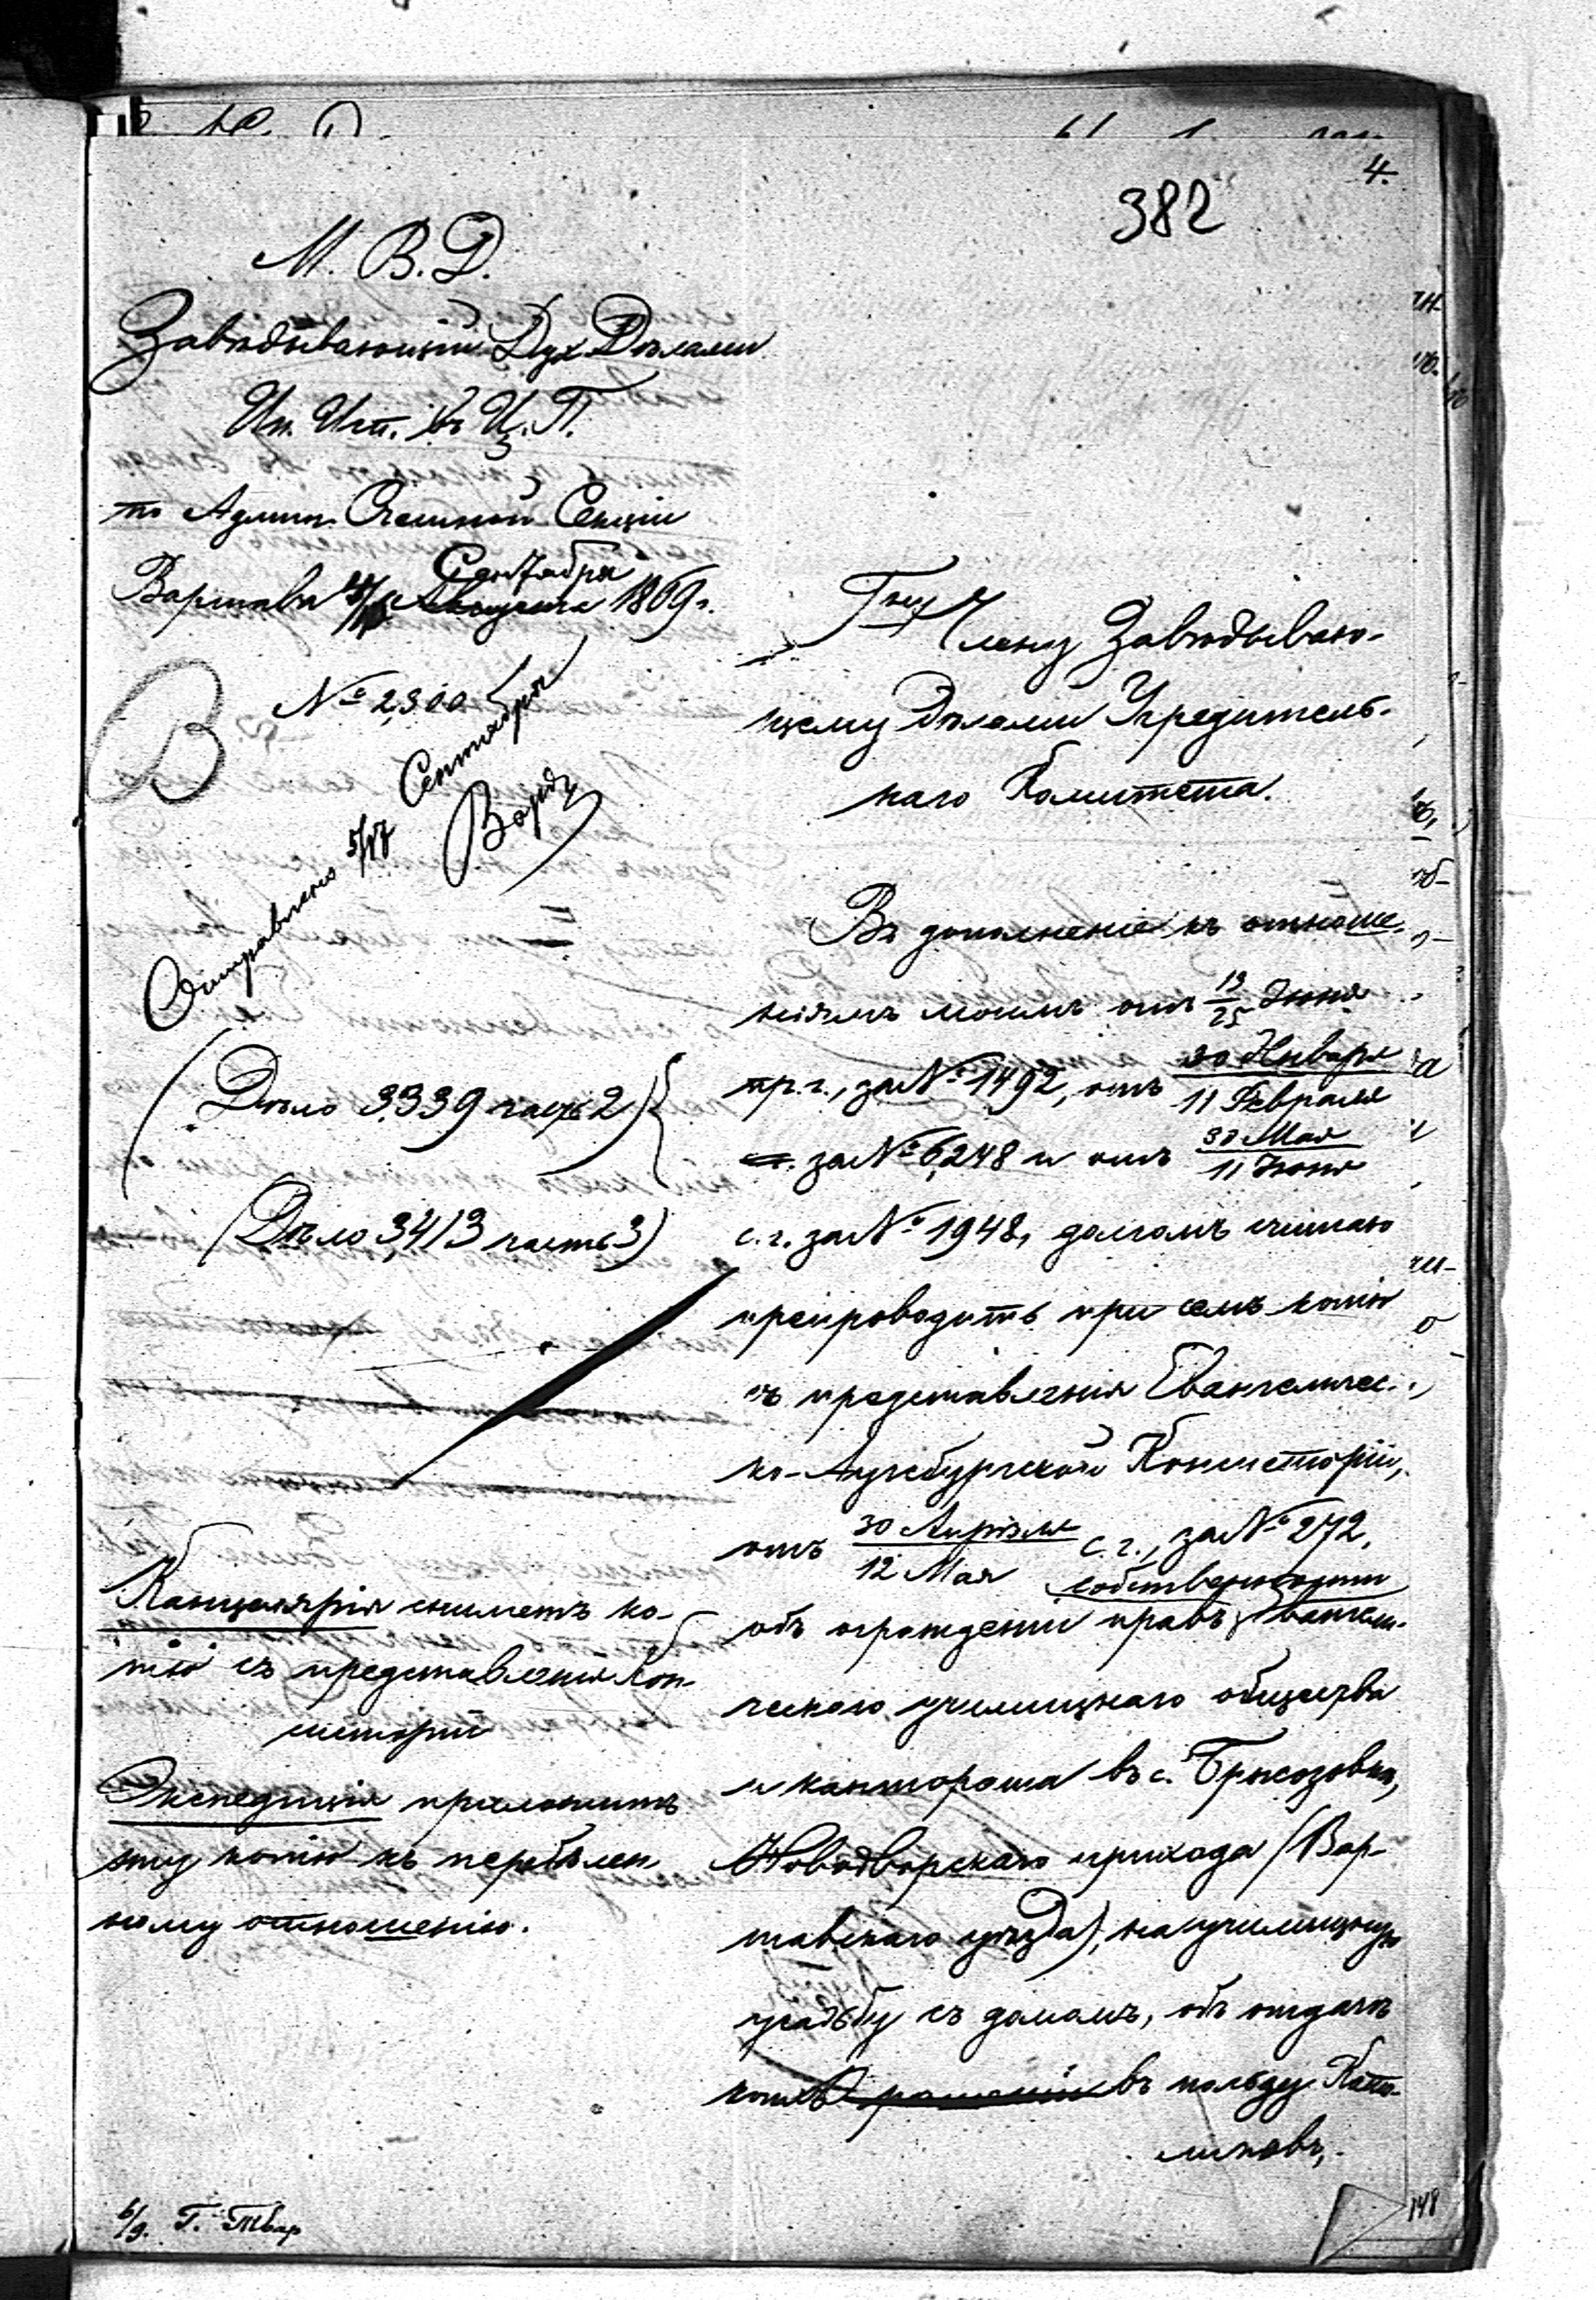 4.
382
М. В. Д.
Завѣдывающій Дух. Дѣлами
Ин. Исп. въ Ц. П.
по Админ. Счетной Секціи
Сентября
Варшава Августа 1869 г.
№ 2,300
В
Отправлено 5/17 Сентября
(Дѣло 3339 часть 2)
(Дѣло 3,413 часть 3)
Канцелярія сниметъ ко-
пію съ представленія Кон-
систоріи
Экспедиція приложитъ
эту копію къ перебѣлен-
ному отношенію.
Г. Члену Завѣдываю-
щему Дѣлами Учредитель-
наго Комитета.
Въ дополненіе къ отноше-
ніямъ моимъ отъ 13/25 Іюня
пр. г., за № 1492, отъ 30 Января/11 Февраля
за № 6,248 и отъ 30 Мая/11 Іюня
с. г. за № 1948, долгомъ считаю
препроводить при семъ копію
съ представленія Евангеличес-
ко-Аугсбургской Консисторіи,
отъ 30 Апрѣля/12 Мая с. г., за № 272,
собственности
объ огражденіи правъ Евангели-
ческаго училищнаго общества
и кантората въ с.
Новодворскаго прихода (Вар-
шавскаго уѣзда), на училищную
усадьбу съ домомъ, объ отдачѣ
коихъ въ пользу Като-
ликовъ,
148